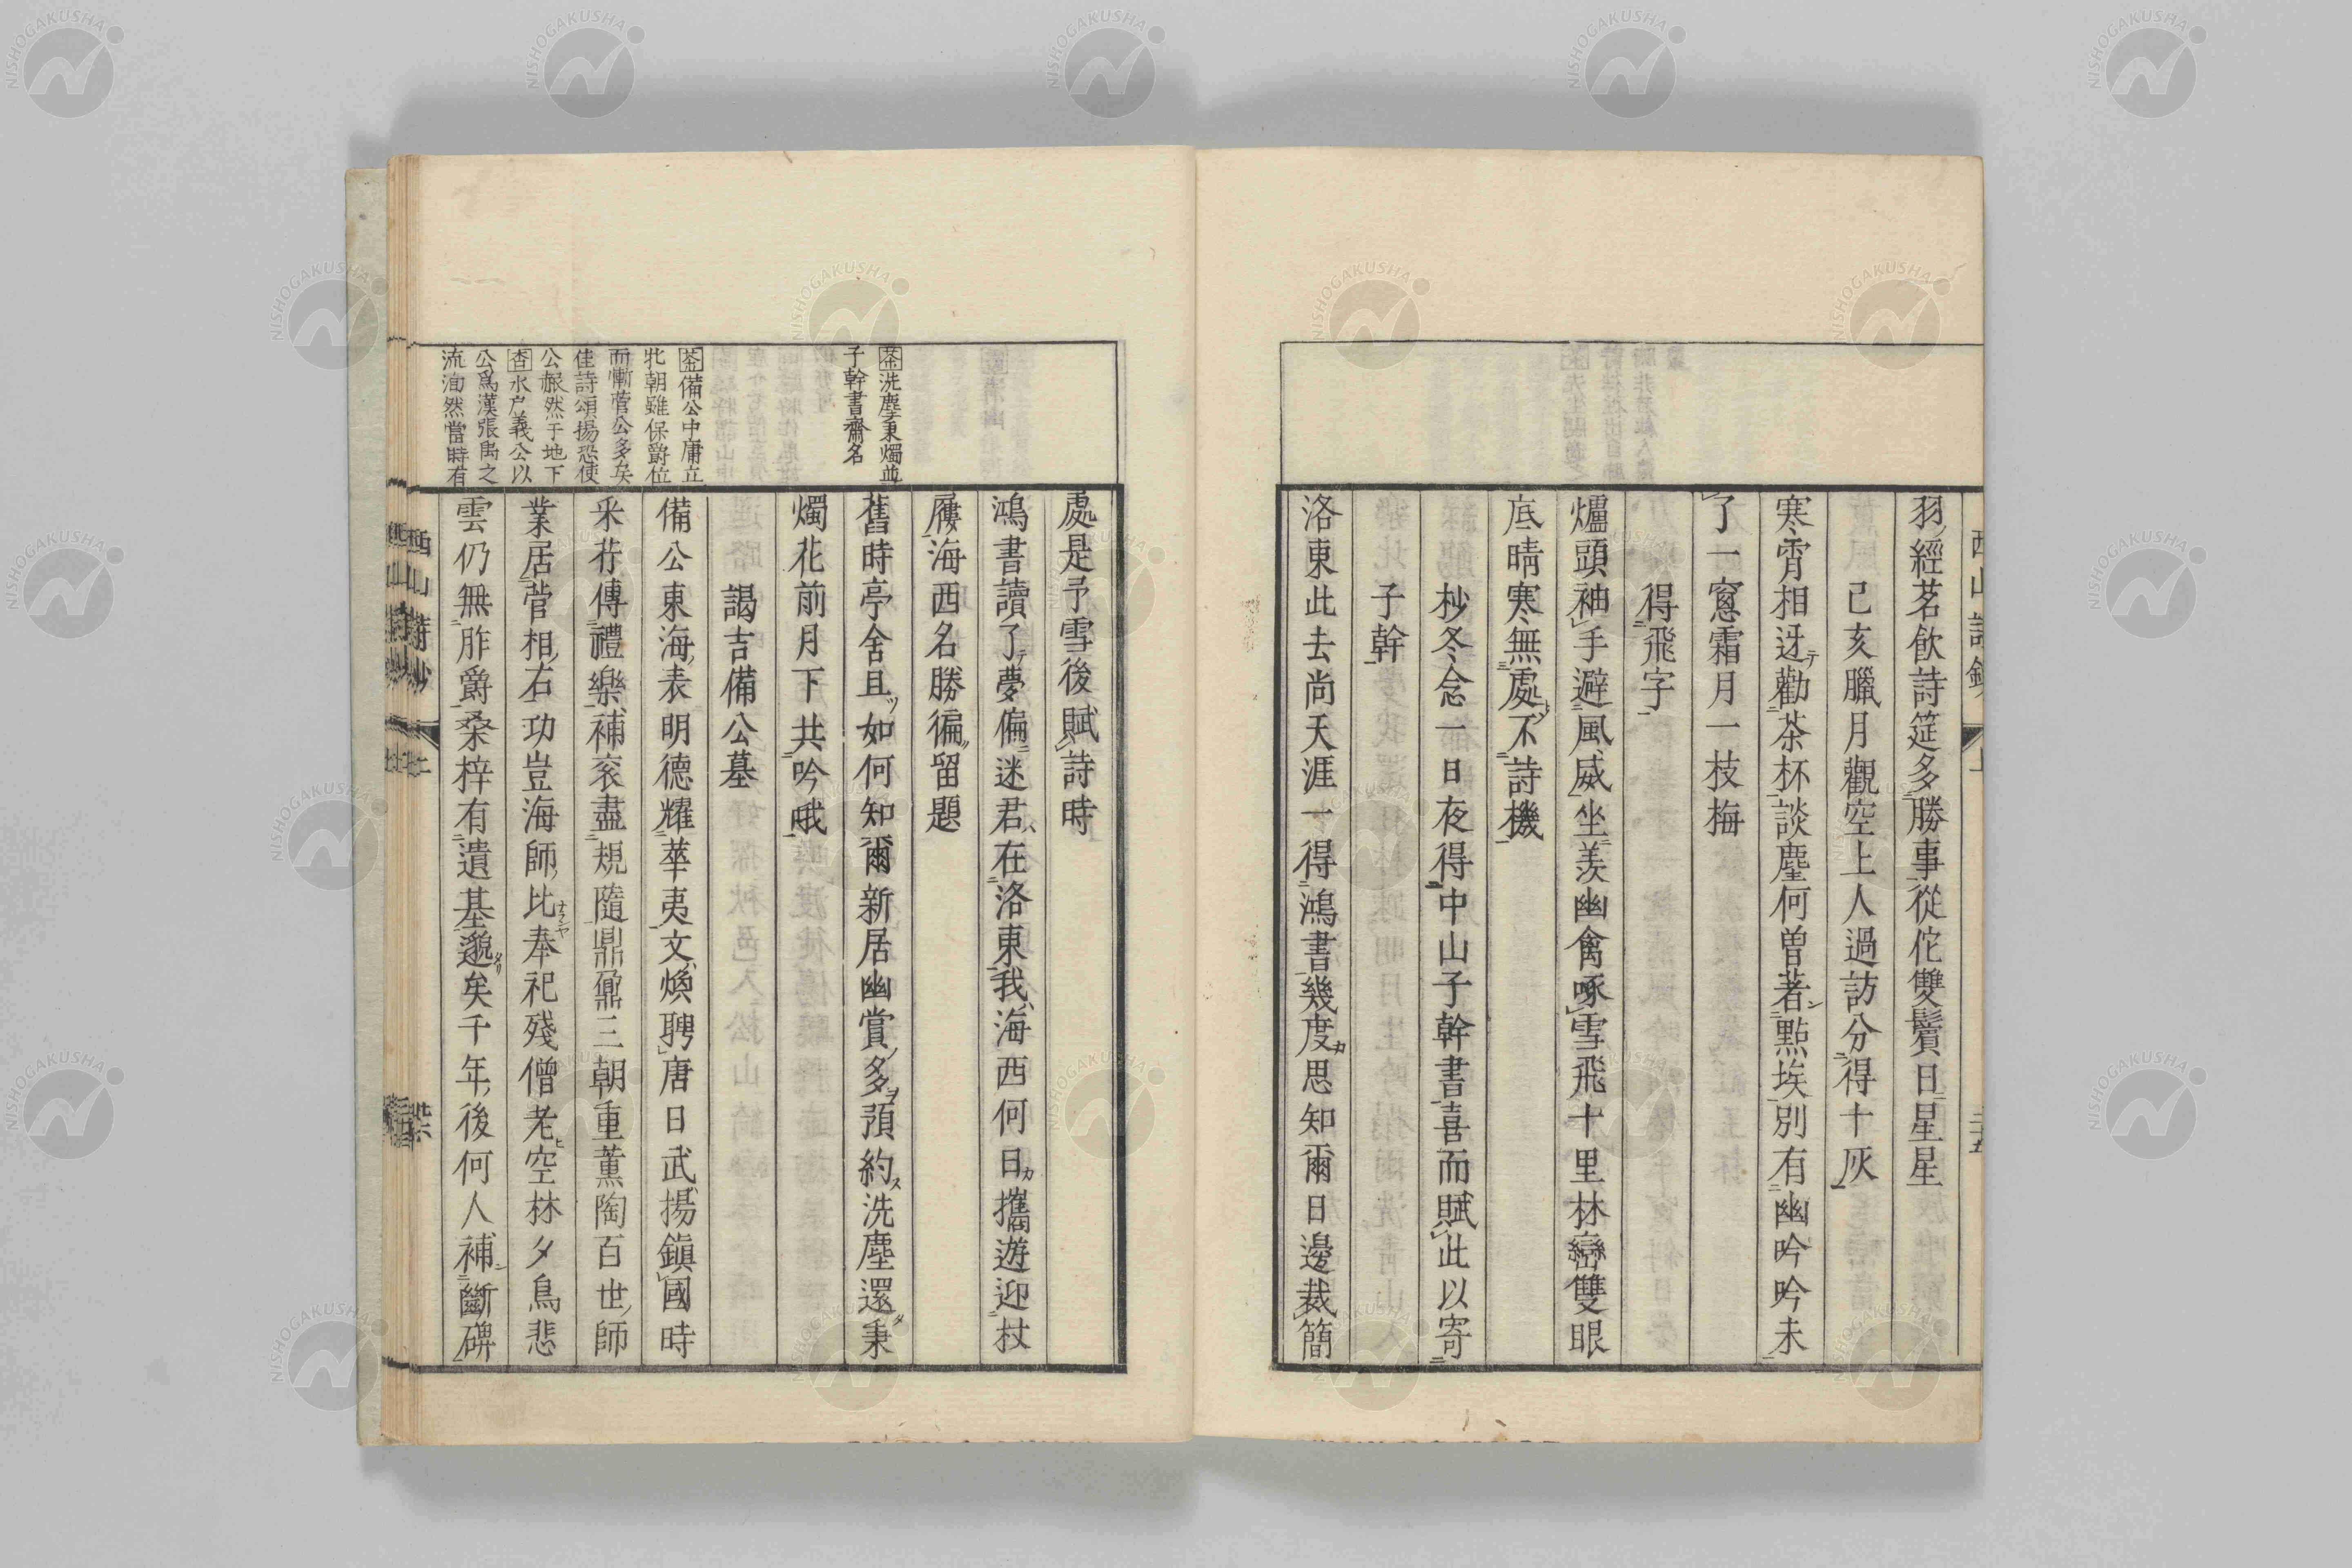 羽經茗飮詩筵多勝事從佗雙鬢日星星
己亥臘月觀空上人過訪分得十灰
寒宵相迓勸茶杯談麈何曾著點埃別有幽吟吟未
了一窻霜月一枝梅
得飛字
爐頭袖手避風威坐羨幽禽啄雪飛十里林巒雙眼
底晴寒無處不詩機
杪冬念一日夜得中山子幹書喜而賦此以寄
子幹
洛東此去尚天涯一得鴻書幾度思知爾日邊裁簡
處是予雪後賦詩時
鴻書讀了夢偏迷君在洛東我海西何日攜遊迎杖
屨海西名勝徧留題
舊時亭舍且如何知爾新居幽賞多預約洗塵還秉
燭花前月下共吟哦
謁吉備公墓
備公東海表明德耀華夷文煥聘唐日武揚鎭國時
釆芹傳禮樂補衮盡規隨鼎鼐三朝重薰陶百世師
業居菅相右功豈海師比奉祀殘僧老空林夕鳥悲
雲仍無胙爵桑梓有遺基邈矣千年後何人補斷碑
茶洗塵秉燭並
子幹書齋名
茶備公中庸立
牝朝雖保爵位
而慚菅公多矣
佳詩頌揚恐使
公赧然于地下
杏水戸義公以
公爲漢張禹之
流洵然當時有
西山詩鈔
NISHOGAKUSHA